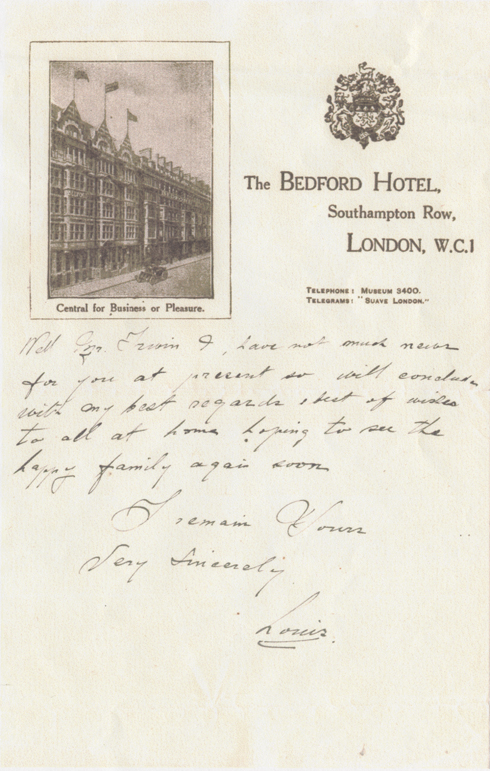 The BEDFORD HOTEL,
Southampton Row,
LONDON, W.C.1
TELEPHONE: MUSEUM 3400.
TELEGRAMS: "SUAVE LONDON."
Central for Business or Pleasure.
Well Mr. Irwin I, have not much news
for you at present so will conclude
with my best regards & best of wishes
to all at home hoping to see the
happy family again soon
I remain Yours
Very Sincerely
Louis.